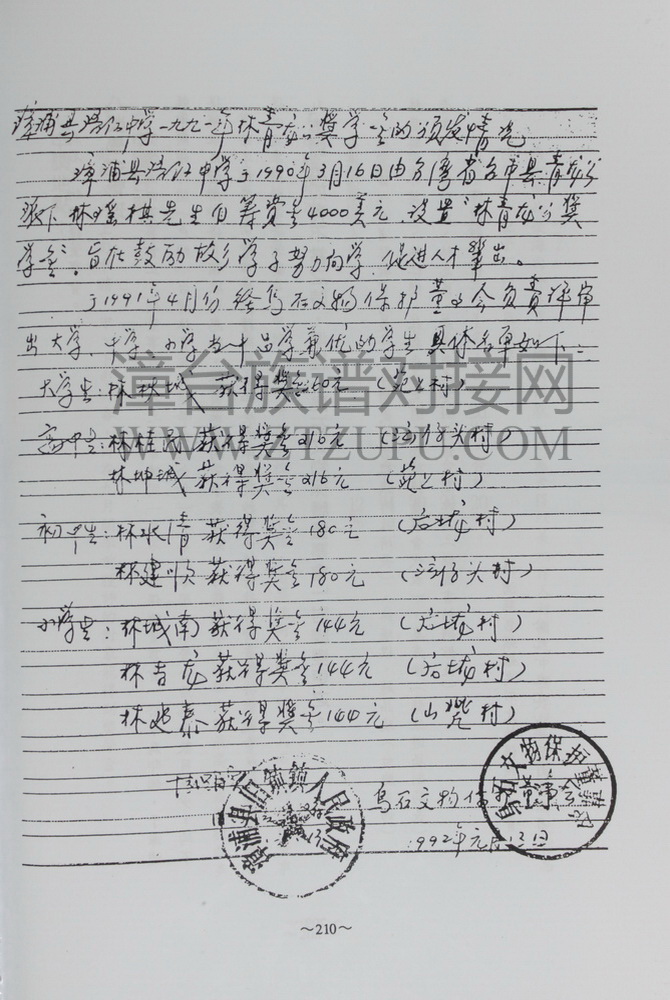 漳浦县 中学一九九一年林青龙公奖学金的颁发情况
漳浦县 中学于1990年3月16日由台湾省台中县青龙公
派下林瑶棋先生自筹资金4000美元,设置"林青龙公奖
学金",旨在鼓励故乡学子努力向学,促进人才辈出。
于1991年4月份经乌石文物保护董事会负责评审
出大学 中学 小学 品学兼优的学生具体名单如下:
大学生:林 城 获得奖金 60元 (苑上村)
高中生:林桂 获得奖金216元 ( 仔头村)
林坤城 获得奖金216元 (苑上村)
初中生:林水清 获得奖金180元 (后垅村)
林建顺 获得奖金180元 ( 仔头村)
小学生:林城南 获得奖金144元 (后垅村)
林吉龙 获得奖金144元 (后垅村)
林 泰 获得奖金144元 (山 村)
漳浦县旧镇镇人民政府
乌石文物保护董事会
1992年元月13日
漳台族谱对接网
WWW.ZTZUPU.COM
~210~